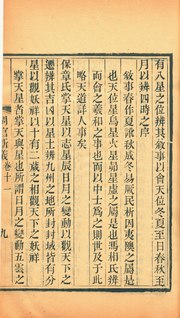 有八星之位辨其敘事以會天位冬夏至日春秋至
月以辨四時之序
敘事春作夏訛秋成冬易厥民析因夷隩之屬是
也天位星鳥星火星昴星虛之屬是也馮相氏辨
而會之羲和之事也而以中士爲之則世及于此
略天道詳人事矣
保章氏掌天星以志星辰日月之變動以觀天下之
遷辨其吉凶以星土辨九州之地所封封域皆有分
星以觀妖祥以十有二歲之相觀天下之妖祥
掌天星者掌天與星也所謂日月之變動五雲之
周官新義 卷十一
九